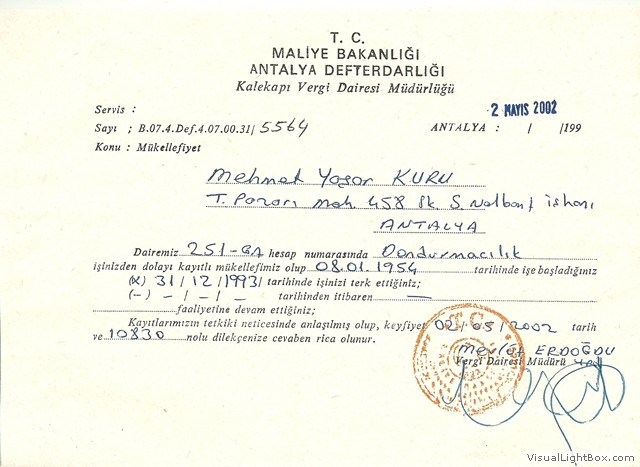 T. C.
MALİYE BAKANLIĞI
ANTALYA DEFTERDARLIĞI
Kalekapı Vergi Dairesi Müdürlüğü
Servis :
2 MAYIS 2002
Sayı ; B.07.4.Def.4.07.00.31/ 5564 ANTALYA : / /199
Konu : Mükellefiyet
Mehmet Yaşar KURU
T. Pazarı mah. 458 sk. S. Nalbant işhanı
ANTALYA
Dairemiz 251-GA hesap numarasında Dondurmacılık
işinizden dolayı kayıtlı mükellefimiz olup 08.01.1954 tarihinde işe başladığınız
(x) 31/12/1993/ tarihinde işinizi terk ettiğiniz;
(-) - / - / - tarihinden itibaren —
faaliyetine devam ettiğiniz;
Kayıtlarımızın tetkiki neticesinde anlaşılmış olup, keyfiyet 02/05/2002 tarih
ve 10830 nolu dilekçenize cevaben rica olunur.
T.C.
Mevlüt ERDOĞDU
Vergi Dairesi Müdürü
VisualLightBox.com